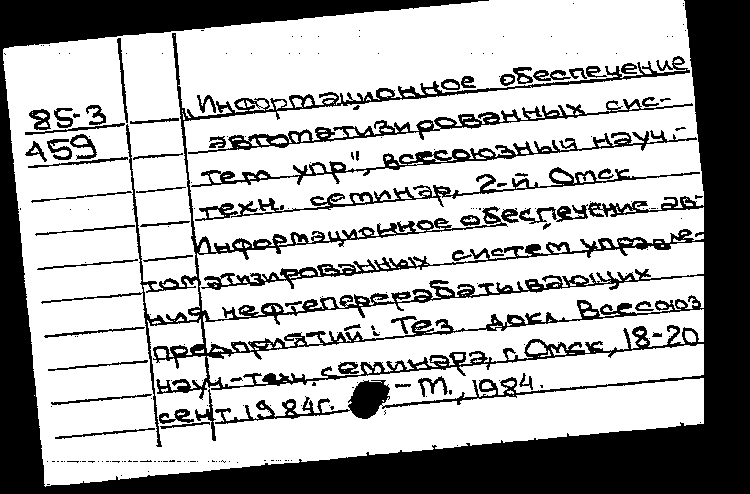 85-3
459
„Информационное обеспечение
автоматизированных сис-
тем упр", всесоюзный науч.-
техн. семинар, 2-й. Омск.
Информационное обеспечение ав-
томатизированных систем управле-
ния нефтеперерабатывающих
предприятий: Тез. докл. Всесоюз
науч.-техн. семинара, г. Омск, 18-20
сент. 1984г. -М., 1984.